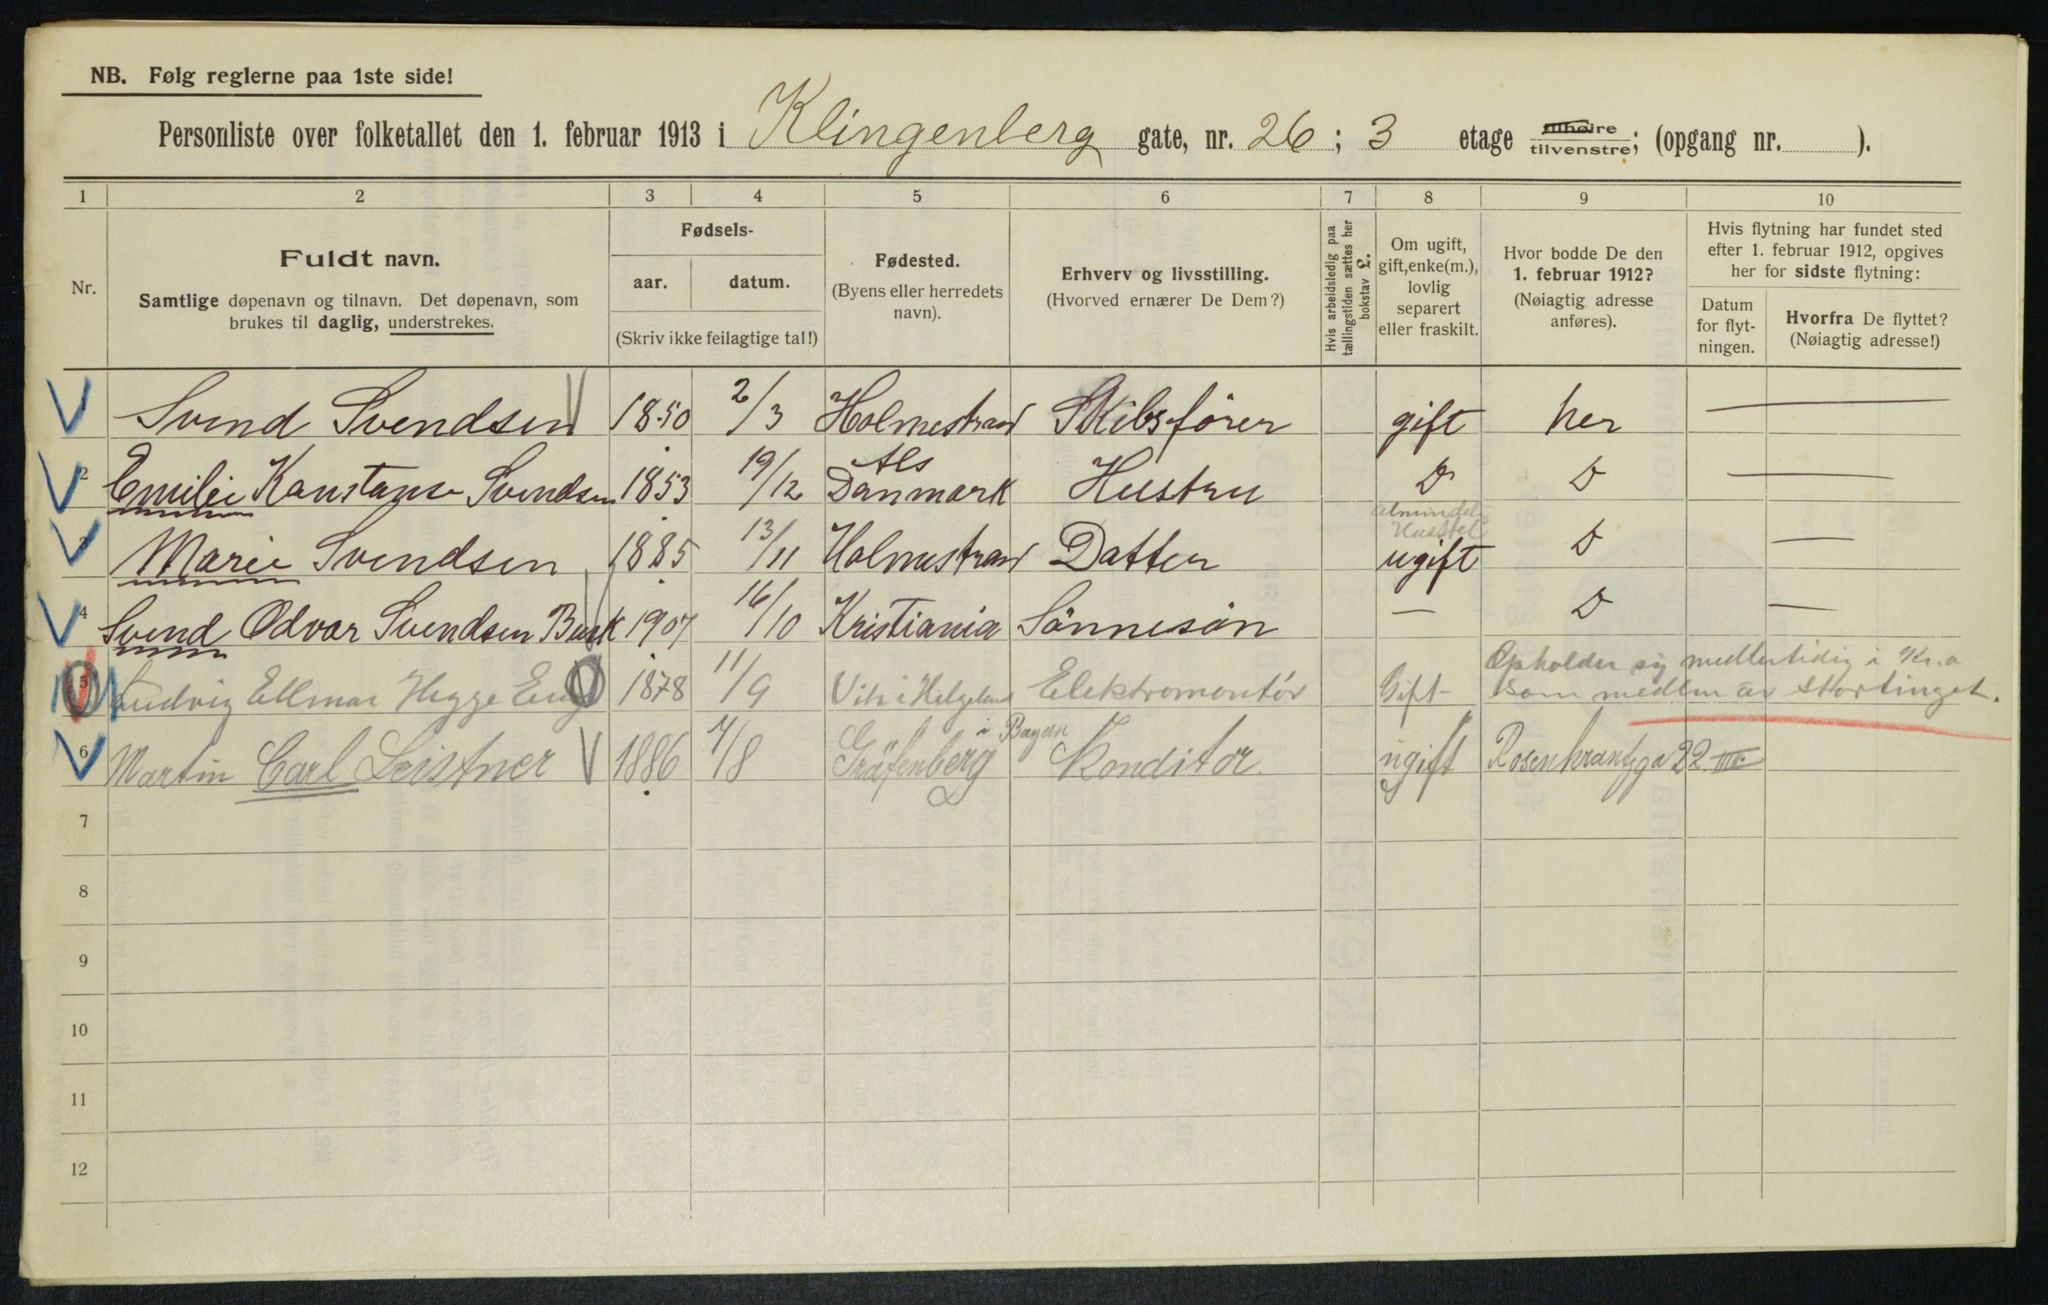 NB. Følg reglerne paa 1ste side!
Personliste over folketallet den 1. februar 1913 i Klingenberg gate, nr. 26 ; 3 etage tilhøire tilvenstre; (opgang nr. ).
1 2 3 4 5 6 7 8 9 10
Nr.
Fuldt navn.
Samtlige døpenavn og tilnavn. Det døpenavn, som
brukes til daglig, understrekes.
Fødsels-
aar. datum.
(Skriv ikke feilagtige tal!)
Fødested.
(Byens eller herredets
navn).
Erhverv og livsstilling.
(Hvorved ernærer De Dem?)
Hvis arbeidsledig paa
tællingstiden sættes her
bokstav L.
Om ugift,
gift, enke(m.),
lovlig
separert
eller fraskilt.
Hvor bodde De den
1. februar 1912?
(Nøiagtig adresse
anføres).
Hvis flytning har fundet sted
efter 1. februar 1912, opgives
her for sidste flytning:
Datum
for flyt-
ningen.
Hvorfra De flyttet?
(Nøiagtig adresse!)
Svend Svendsen 1850 2/3 Holmestrand Skibsfører gift her —
2 Emilie Konstanse Svendsen 1853 19/12 Als Danmark Hustru D D —
3 Marie Svendsen 1885 13/11 Holmestrand Datter ugift D —
4 Svend Odvar Svendsen Busk 1907 16/10 Kristiania Sønnesøn — D —
5 Ludvig Ellmar Hegge 1878 11/9 i Helgeland Elektromontør Gift Opholder sig midlertidig i Kr.a
som medlem av stortinget.
6 Martin Carl Leistner 1886 4/8 Gräfenberg i Bayern Konditor. ugift Rosenkrantzga 22 III.
7
8
9
10
11
12